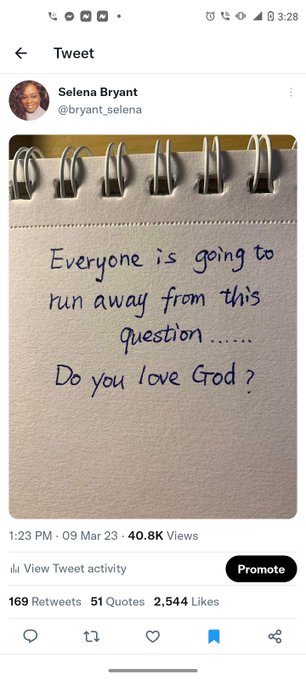 3:28
Tweet
Selena Bryant
@bryant_selena
Everyone is going to
run away from this
question ......
Do you love God ?
1:23 PM · 09 Mar 23 · 40.8K Views
View Tweet activity
Promote
169 Retweets 51 Quotes 2,544 Likes